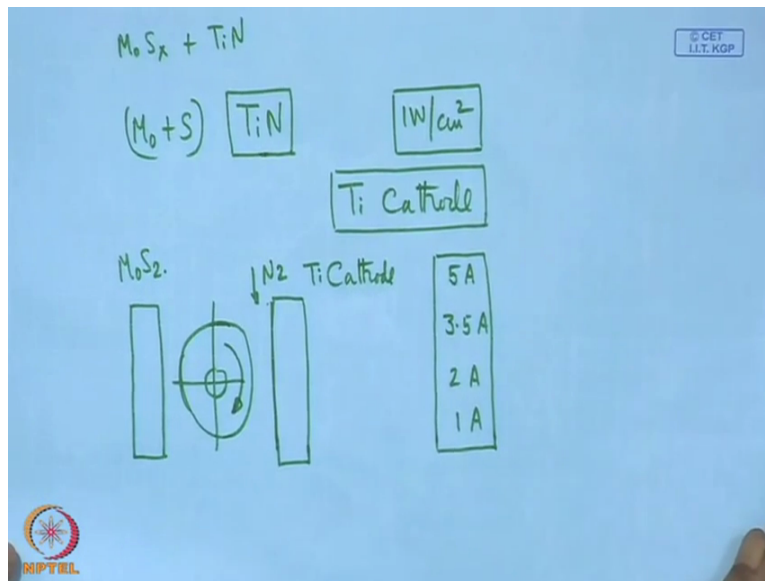 MoSx + TiN
© CET
I.I.T. KGP
(Mo+S) TiN 1W/cm²
Ti Cathode
MoS2. ↓N2 Ti Cathode
5A
3.5A
2A
1A
NPTEL